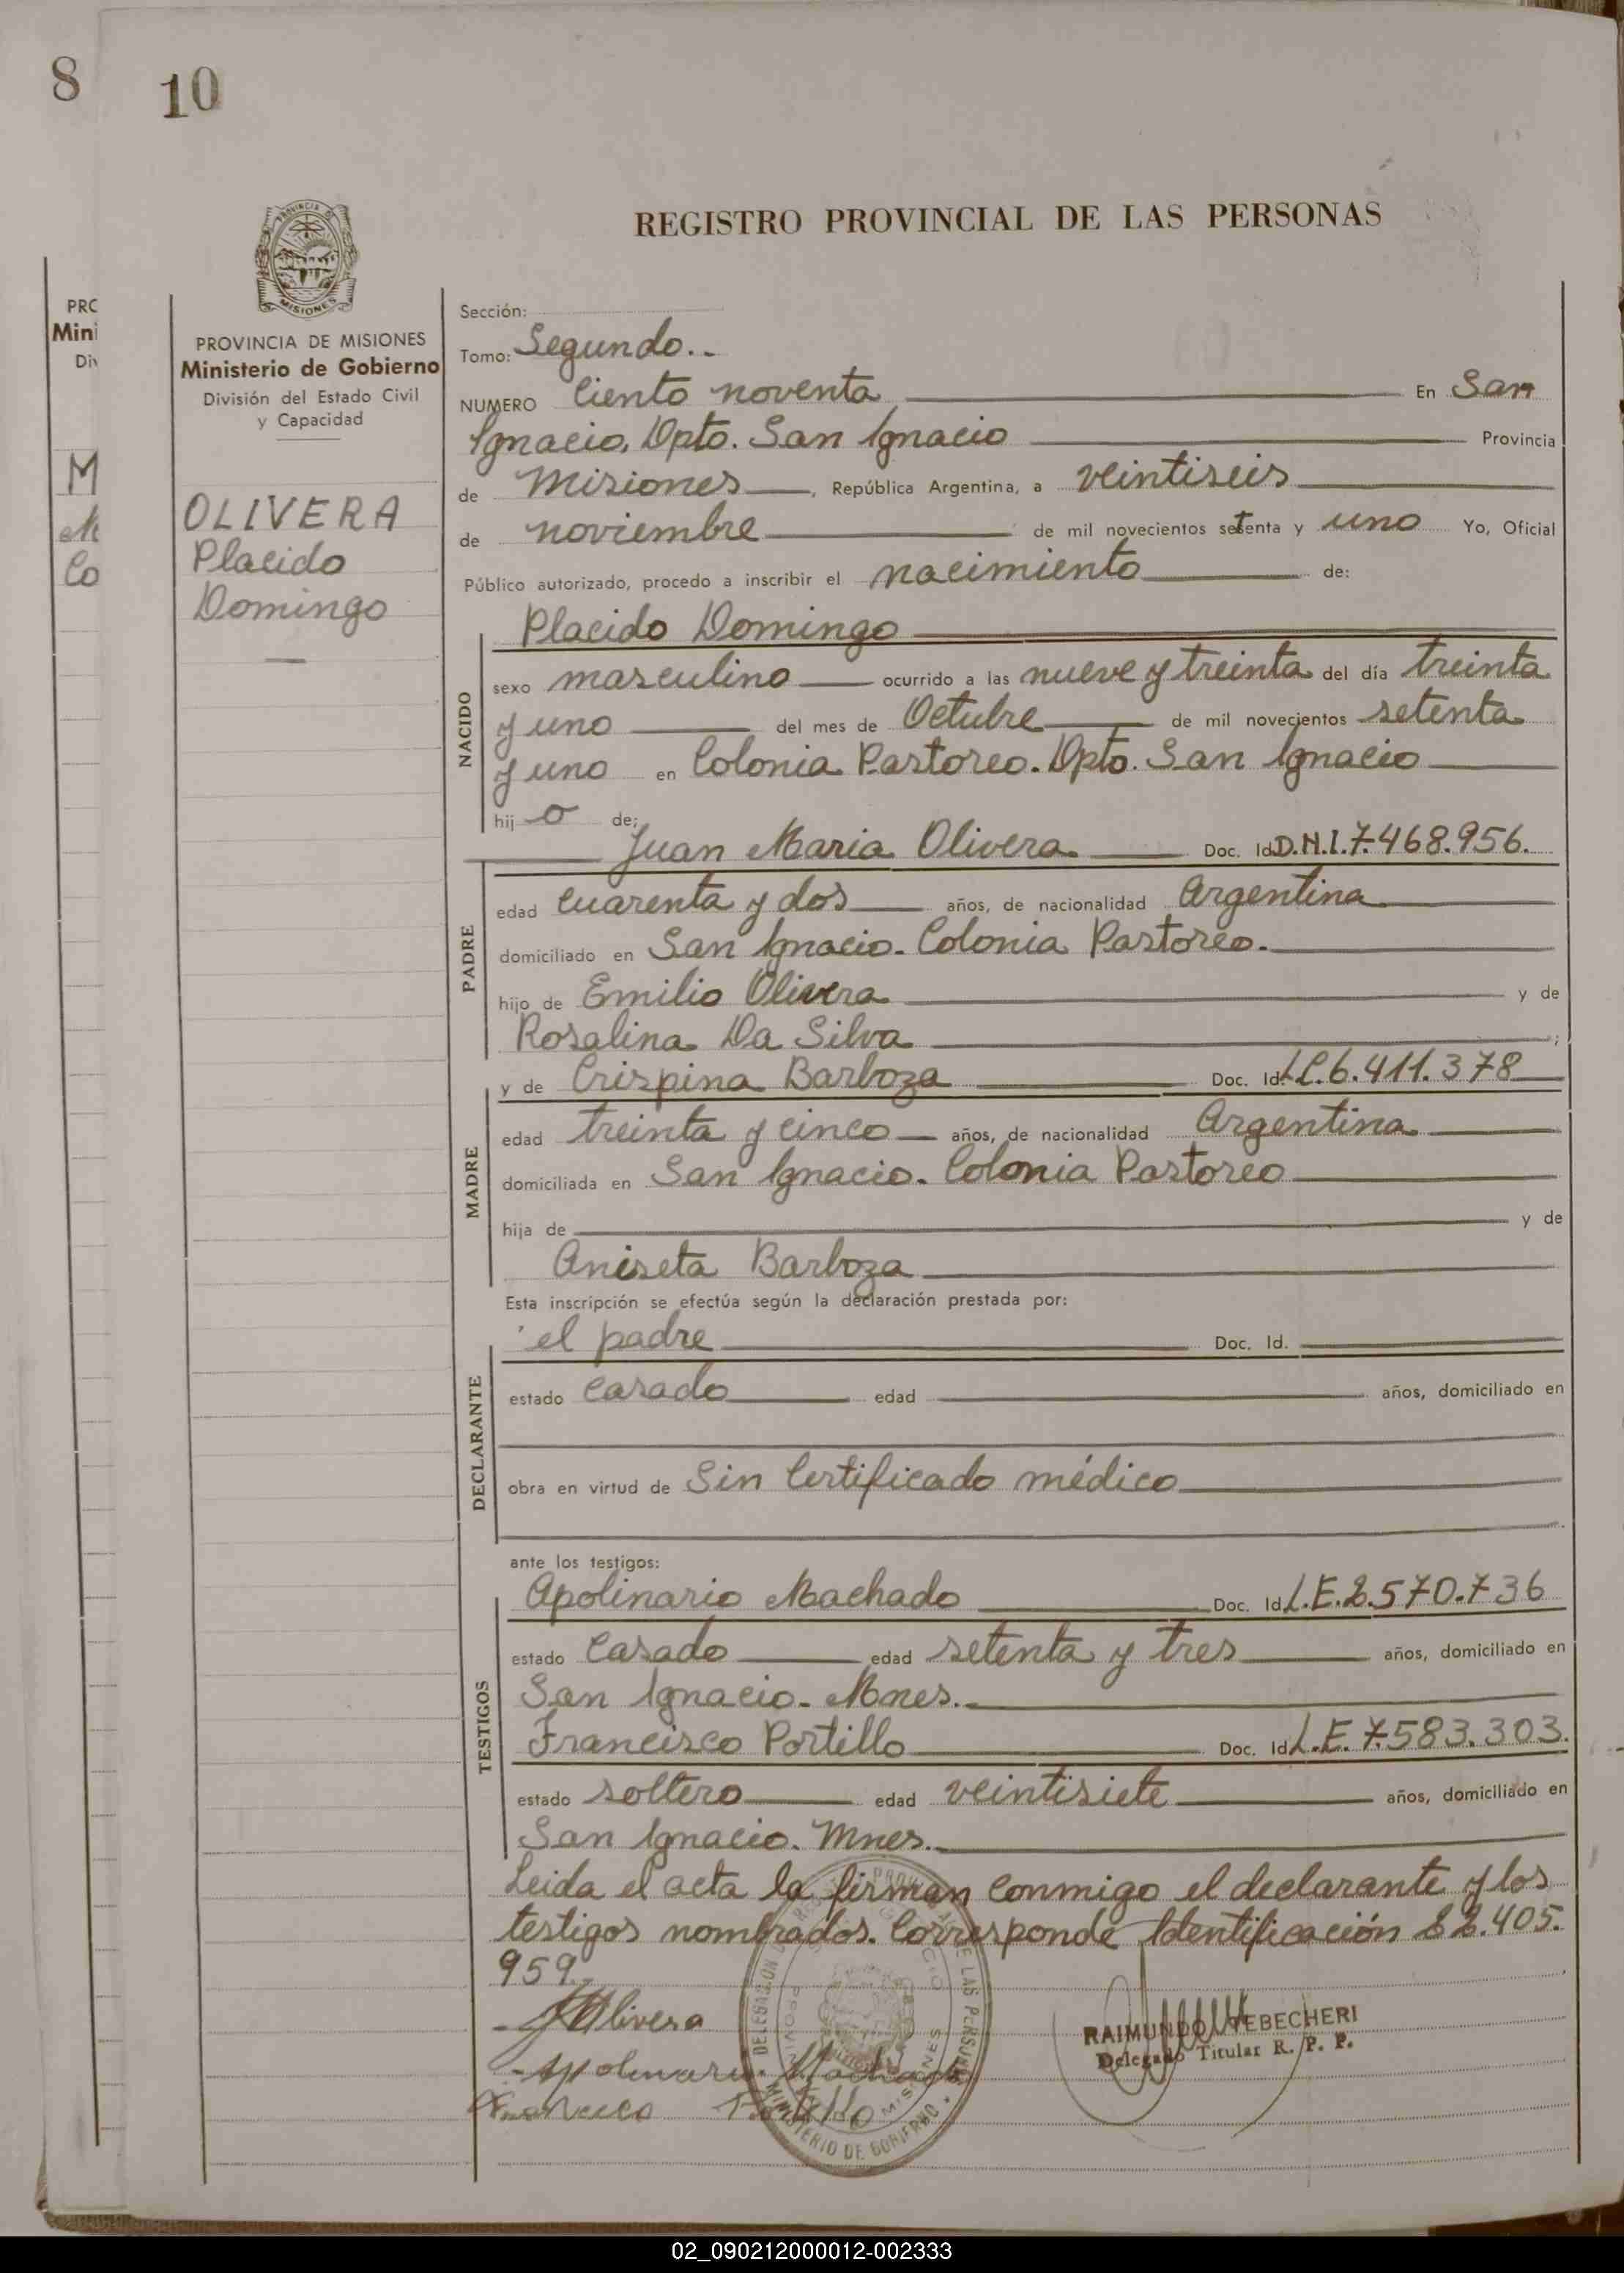 8
10
REGISTRO PROVINCIAL DE LAS PERSONAS
PROVINCIA DE MISIONES
Ministerio de Gobierno
División del Estado Civil
y Capacidad
OLIVERA
Placido
Domingo
Sección:
Tomo: Segundo..
NUMERO Ciento noventa En San
Ignacio, Dpto. San Ignacio Provincia
de Misiones, República Argentina, a veintiseis
de noviembre de mil novecientos setenta y uno Yo, Oficial
Público autorizado, procedo a inscribir el nacimiento de:
NACIDO
Placido Domingo
sexo masculino ocurrido a las nueve y treinta del día treinta
y uno del mes de Octubre de mil novecientos setenta
y uno en Colonia Pastoreo. Dpto. San Ignacio
hij o de:
Juan Maria Olivera Doc. Id. D.N.I. 7.468.956.
PADRE
edad cuarenta y dos años, de nacionalidad Argentina
domiciliado en San Ignacio. Colonia Pastoreo.
hijo de Emilio Olivera y de
Rosalina Da Silva;
y de Crispina Barboza Doc. Id. L.C. 6.411.378
MADRE
edad treinta y cinco años, de nacionalidad Argentina
domiciliada en San Ignacio. Colonia Pastoreo
hija de y de
Aniseta Barboza
Esta inscripción se efectúa según la declaración prestada por:
el padre Doc. Id.
DECLARANTE
estado casado edad años, domiciliado en
obra en virtud de Sin Certificado médico
ante los testigos:
TESTIGOS
Apolinario Machado Doc. Id. L.E. 2.570.736
estado casado edad setenta y tres años, domiciliado en
San Ignacio. Mnes.
Francisco Portillo Doc. Id. L.E. 7.583.303.
estado soltero edad veintisiete años, domiciliado en
San Ignacio. Mnes.
Leida el acta la firman conmigo el declarante y los
testigos nombrados. Corresponde Identificación 22.405.
959.
Olivera
RAIMUNDO TEBECHERI
Delegado Titular R. P. P.
Portillo
MINISTERIO DE GOBIERNO
02_090212000012-002333